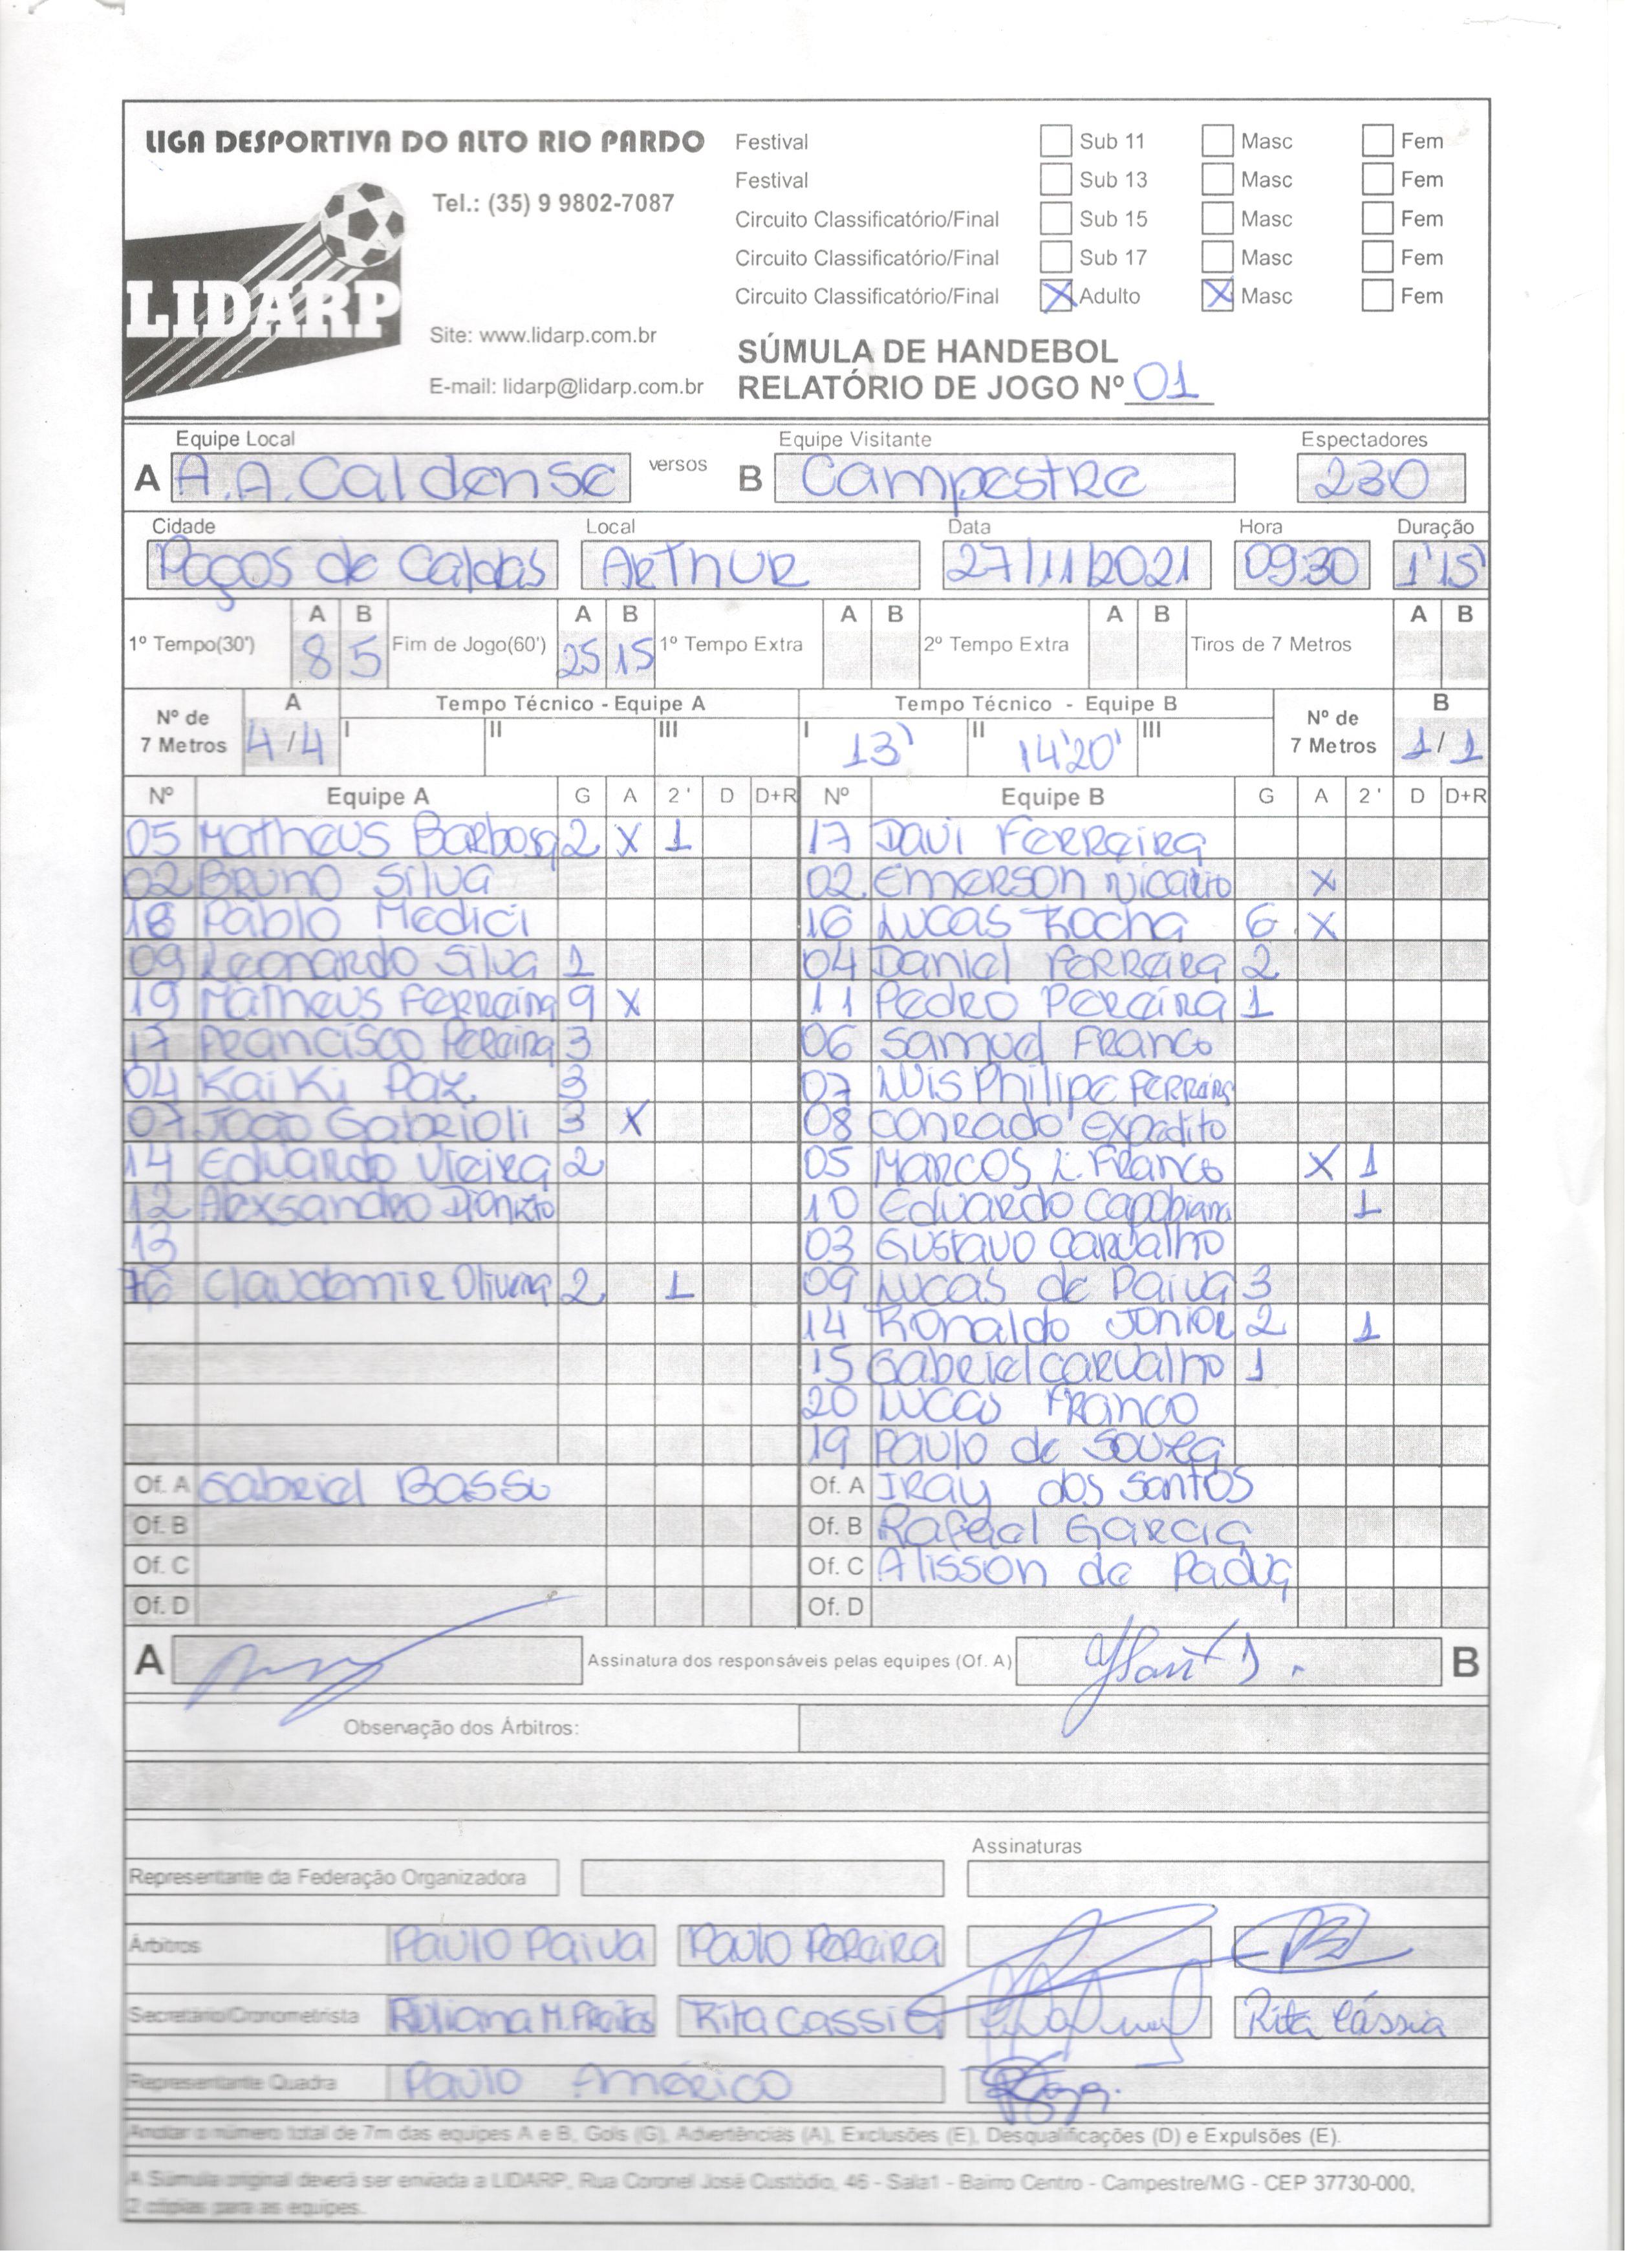 LIGA DESPORTIVA DO ALTO RIO PARDO
Tel.: (35) 9 9802-7087
LIDARP
Site: www.lidarp.com.br
E-mail: lidarp@lidarp.com.br
Festival Sub 11 Masc Fem
Festival Sub 13 Masc Fem
Circuito Classificatório/Final Sub 15 Masc Fem
Circuito Classificatório/Final Sub 17 Masc Fem
Circuito Classificatório/Final X Adulto X Masc Fem
SÚMULA DE HANDEBOL
RELATÓRIO DE JOGO Nº 01
Equipe Local Equipe Visitante Espectadores
A A.A. Caldense versos B Campestre 230
Cidade Local Data Hora Duração
Poços de Caldas Arthur 27/11/2021 09:30 1'15'
A B A B A B A B A B
1º Tempo(30') 8 5 Fim de Jogo(60') 25 15 1º Tempo Extra 2º Tempo Extra Tiros de 7 Metros
Nº de 7 Metros A 4/4 Tempo Técnico - Equipe A I II III Tempo Técnico - Equipe B I 13' II 14'20' III Nº de 7 Metros B 1/1
Nº Equipe A G A 2' D D+R Nº Equipe B G A 2' D D+R
05 Matheus Barbosa 2 X 1 17 Davi Ferreira
02 Bruno Silva 02 Emerson Nicacio X
18 Pablo Medici 16 Lucas Rocha 6 X
09 Leonardo Silva 1 04 Daniel Ferreira 2
19 Matheus Ferreira 9 X 11 Pedro Pereira 1
17 Francisco Pereira 3 06 Samuel Franco
04 Kaiki Paz 3 07 Luis Philipe Ferreira
07 João Gabrioli 3 X 08 Conrado Expedito
14 Eduardo Vieira 2 05 Marcos L. Franco X 1
12 Alexsandro Dionizio 10 Eduardo Capobiano 1
13 03 Gustavo Carvalho
76 Claudemir Oliveira 2 1 09 Lucas de Paiva 3
14 Ronaldo Junior 2 1
15 Gabriel Carvalho 1
20 Lucas Franco
19 Paulo de Souza
Of. A Gabriel Basso Of. A Iray dos Santos
Of. B Of. B Rafael Garcia
Of. C Of. C Alisson de Padua
Of. D Of. D
A Assinatura dos responsáveis pelas equipes (Of. A) B
Observação dos Árbitros:
Assinaturas
Representante da Federação Organizadora
Árbitros Paulo Paiva Paulo Pereira
Secretário/Cronometrista M. Freitas Rita Cassia Rita Cássia
Representante Quadra Paulo Américo
Anotar o número total de 7m das equipes A e B, Gols (G), Advertências (A), Exclusões (E), Desqualificações (D) e Expulsões (E).
A Súmula original deverá ser enviada a LIDARP, Rua Coronel José Custódio, 46 - Sala1 - Bairro Centro - Campestre/MG - CEP 37730-000,
2 cópias para as equipes.